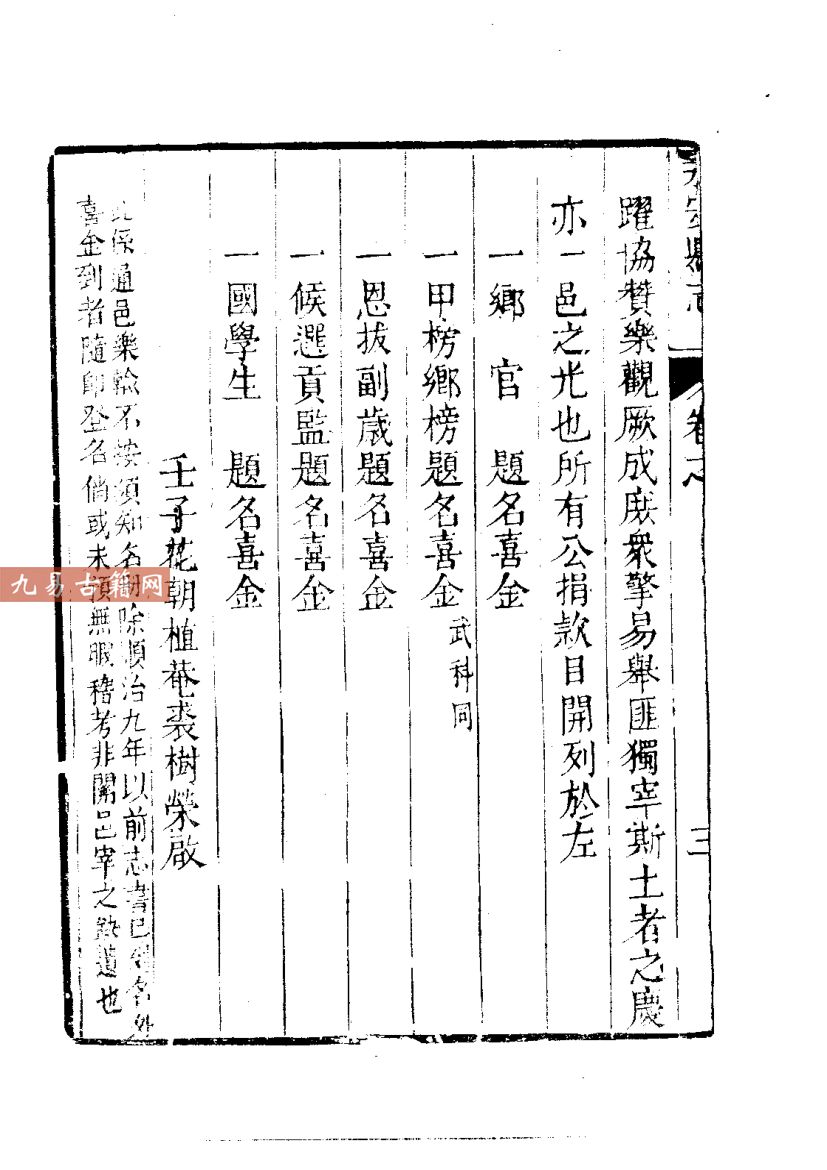 縣志
卷之
三
躍協贊樂觀厥成庶衆擎易舉匪獨宰斯土者之慶
亦一邑之光也所有公捐款目開列於左
一鄉官題名喜金
一甲榜鄉榜題名喜金武科同
一恩拔副歲題名喜金
一候選貢監題名喜金
一國學生題名喜金
壬子花朝植菴裘樹榮啟
係通邑樂輸不按須知名除順治九年以前志書已名外
喜金到者隨即登名倘或未預無暇稽考非關邑宰之缺遺也
九易古籍网